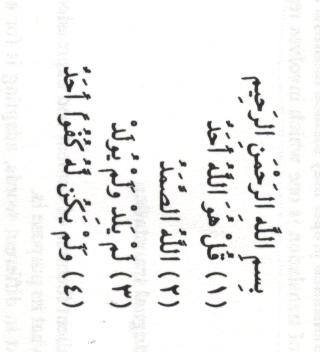 بِسمِ اللَّهِ الرَّحْمَنِ الرَّحِيمِ
(١) قُلْ هُوَ اللَّهُ أَحَدٌ
(٢) اللَّهُ الصَّمَدُ
(٣) لَمْ يَلِدْ وَلَمْ يُولَدْ
(٤) وَلَمْ يَكُن لَّهُ كُفُوًا أَحَدٌ